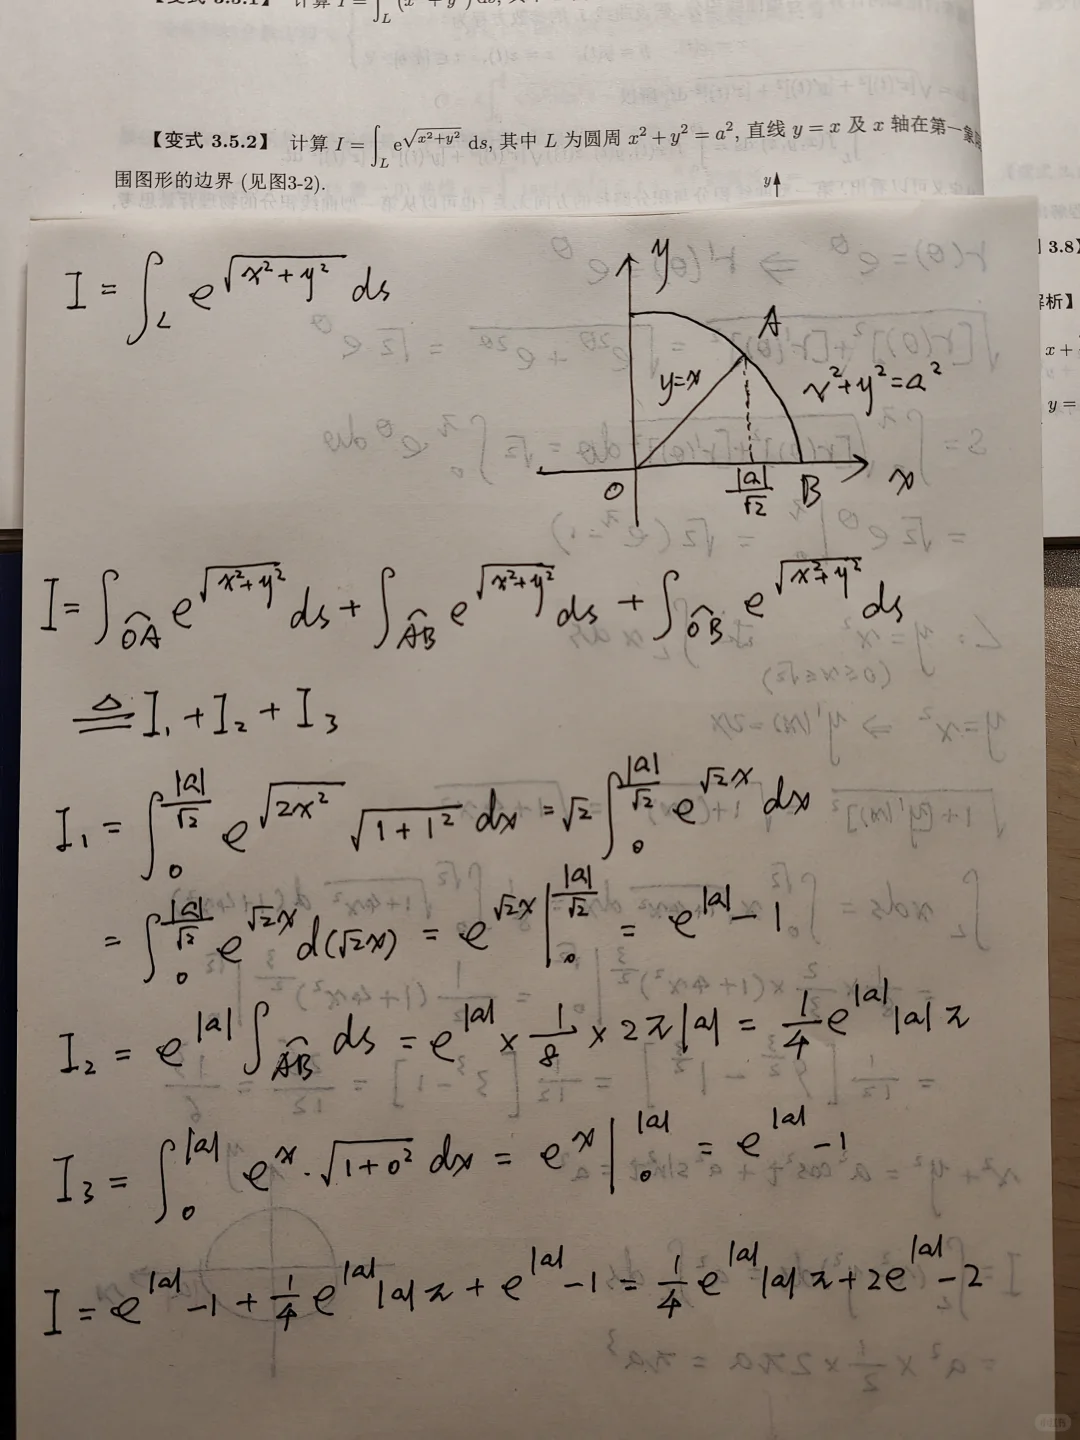 【变式 3.5.1】 计算 I = ∫_L (x² + y²) ds,
【变式 3.5.2】 计算 I = ∫_L e^{√(x²+y²)} ds, 其中 L 为圆周 x² + y² = a², 直线 y = x 及 x 轴在第一象
围图形的边界 (见图3-2).
y
3.8】
解析】
x +
y =
I = ∫_L e^{√(x²+y²)} ds
y
A
y=x
x²+y²=a²
O
|a|/√2
B
x
I = ∫_{OA} e^{√(x²+y²)} ds + ∫_{AB} e^{√(x²+y²)} ds + ∫_{OB} e^{√(x²+y²)} ds
≜ I₁ + I₂ + I₃
I₁ = ∫_0^{|a|/√2} e^{√(2x²)} √(1+1²) dx = √2 ∫_0^{|a|/√2} e^{√2x} dx
= ∫_0^{|a|/√2} e^{√2x} d(√2x) = e^{√2x} |_0^{|a|/√2} = e^{|a|} - 1
I₂ = e^{|a|} ∫_{AB} ds = e^{|a|} × 1/8 × 2π|a| = 1/4 e^{|a|} |a| π
I₃ = ∫_0^{|a|} e^x · √(1+0²) dx = e^x |_0^{|a|} = e^{|a|} - 1
I = e^{|a|} - 1 + 1/4 e^{|a|} |a| π + e^{|a|} - 1 = 1/4 e^{|a|} |a| π + 2e^{|a|} - 2
小红书